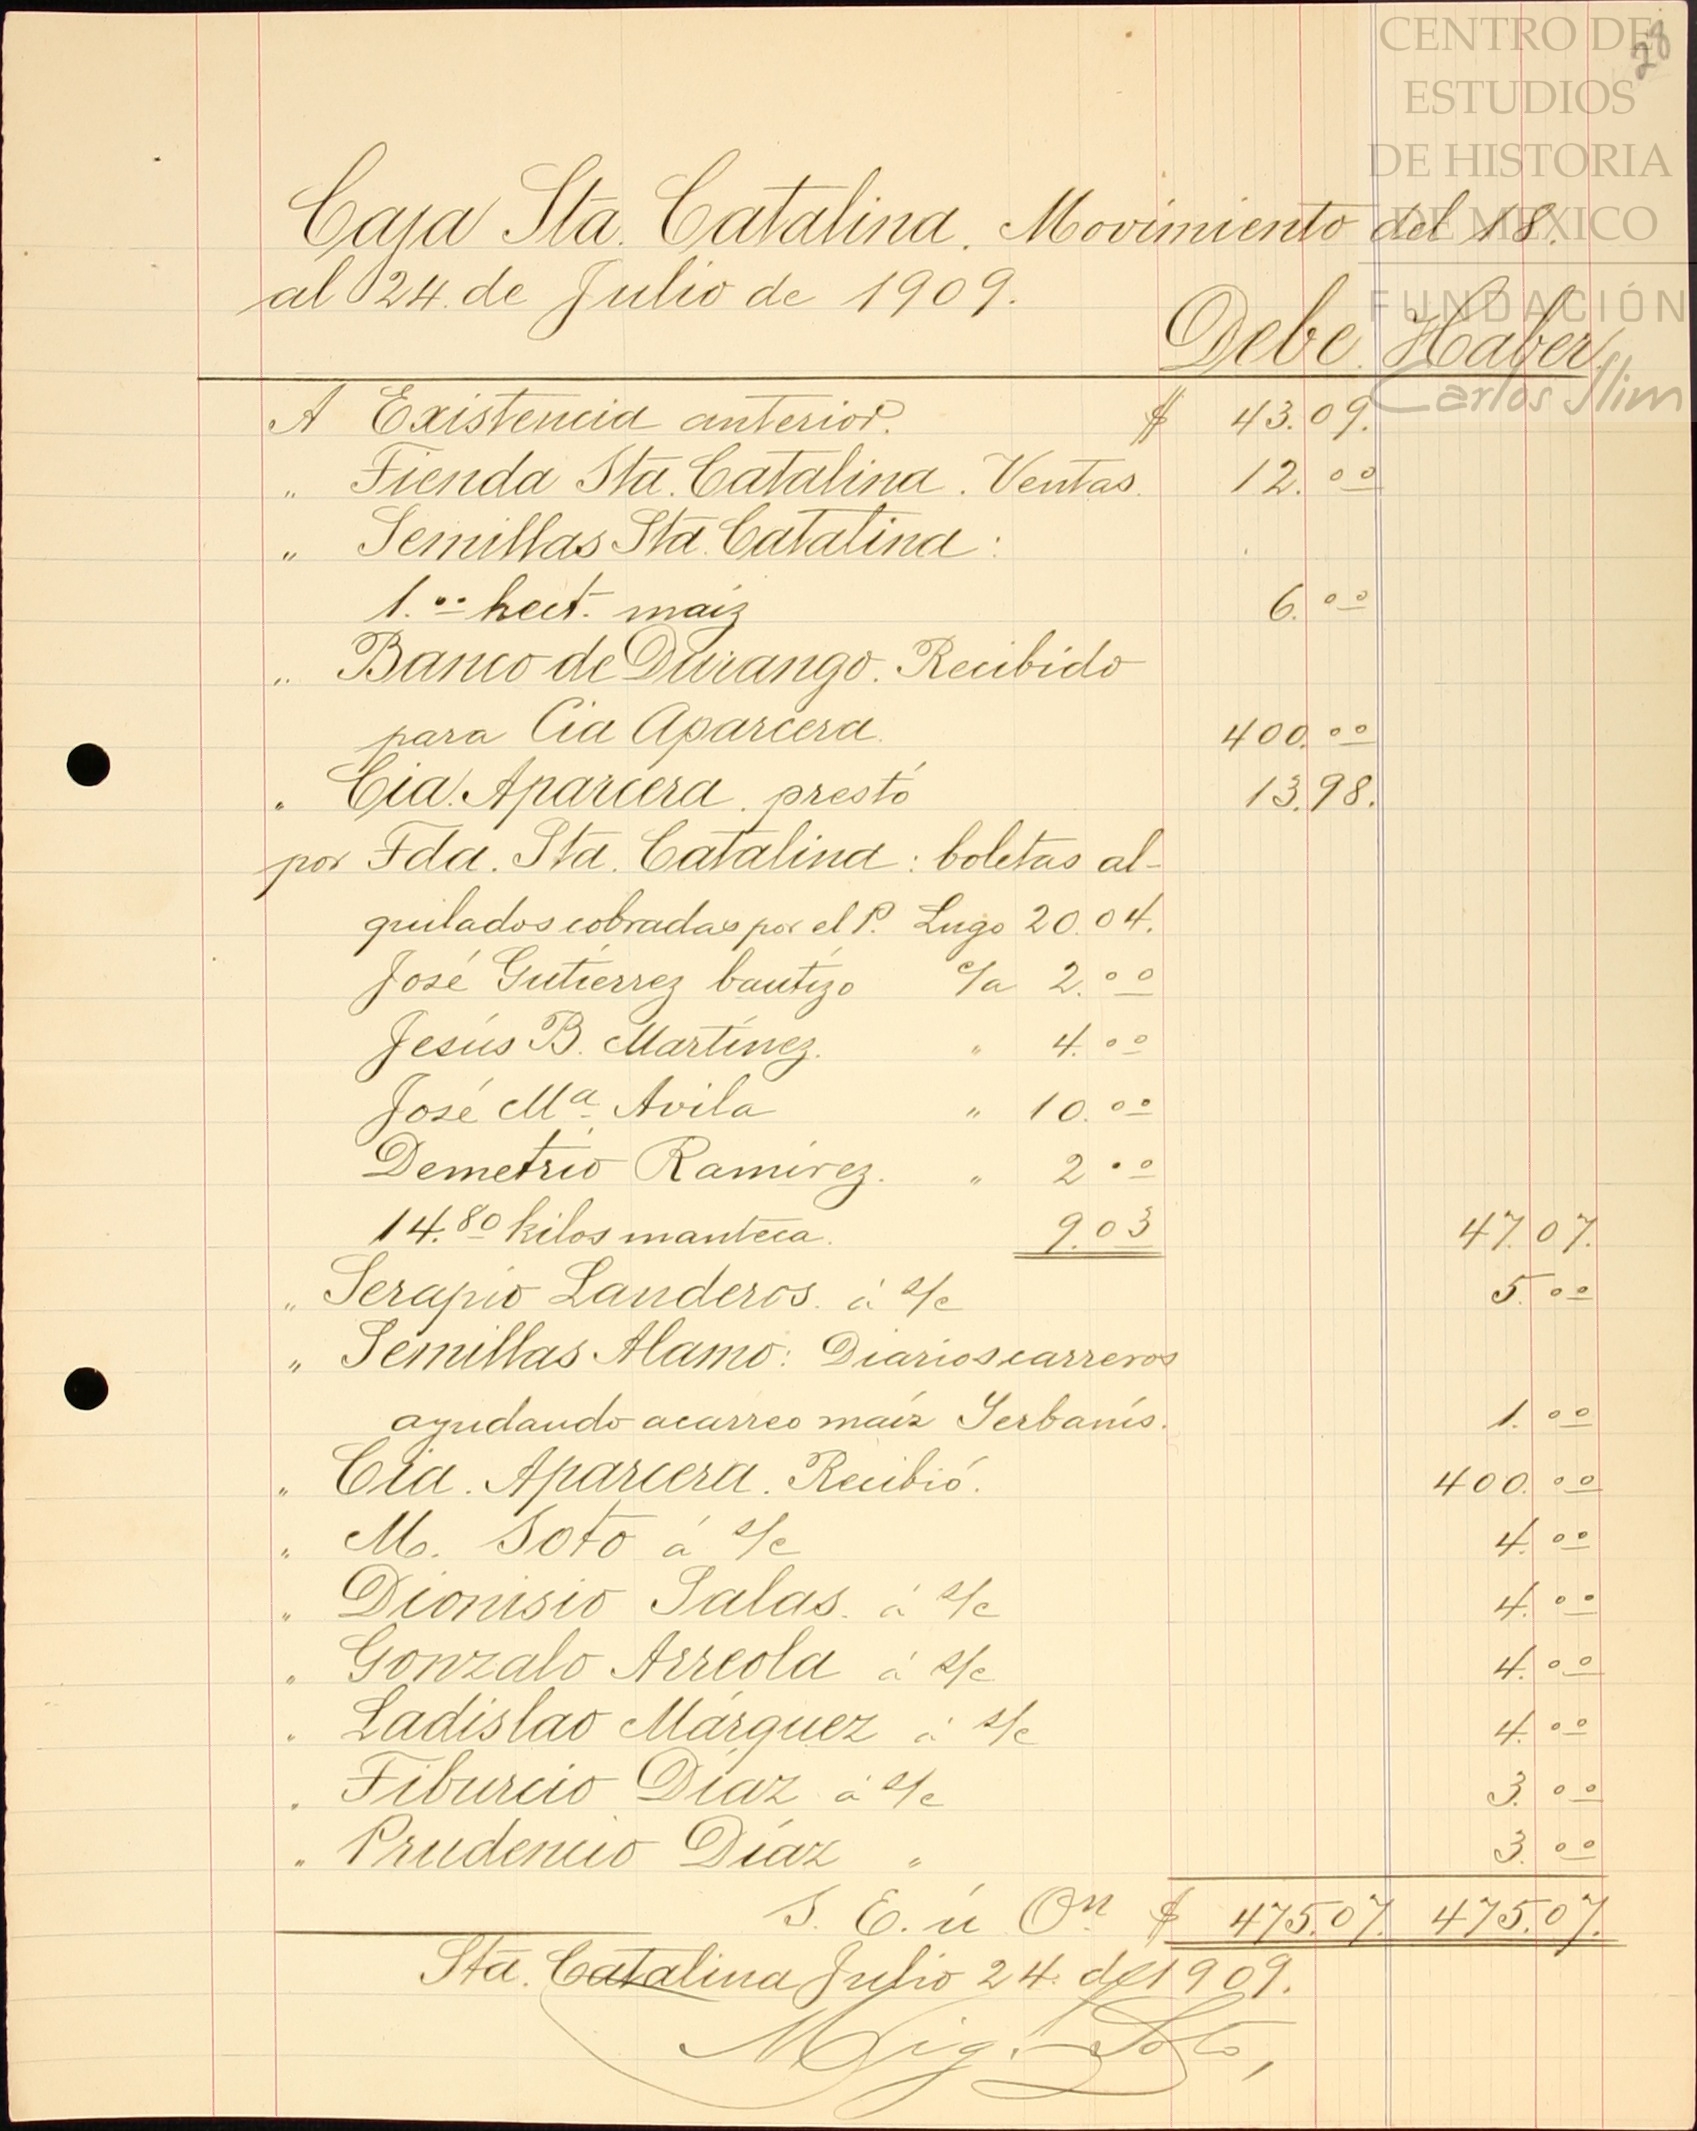 CENTRO DE
ESTUDIOS
DE HISTORIA
DE MEXICO
FUNDACIÓN
Carlos Slim
28
Caja Sta. Catalina. Movimiento del 18.
al 24 de Julio de 1909.
Debe. Haber.
A Existencia anterior. $ 43.09.
„ Tienda Sta. Catalina. Ventas. 12.00
„ Semillas Sta. Catalina:
1.00 hect. maiz 6.00
„ Banco de Durango. Recibido
para Cia Aparcera. 400.00
„ Cia. Aparcera. prestó 13.98.
por Fda. Sta. Catalina: boletas al-
quilados cobradas por el P. Lugo 20.04.
José Gutierrez bautizo c/a 2.00
Jesús B. Martínez. „ 4.00
José Ma. Avila „ 10.00
Demetrio Ramírez. „ 2 00
14.80 kilos manteca. 9.03 47.07.
„ Serapio Landeros. á s/c 5.00
„ Semillas Alamo: Diarios carreros
ayudando acarreo maíz Yerbanís. 1.00
„ Cia. Aparcera. Recibió. 400.00
„ M. Soto á s/c 4.00
„ Dionisio Salas. á s/c 4.00
„ Gonzalo Arreola á s/c 4.00
„ Ladislao Márquez á s/c 4.00
„ Tiburcio Díaz á s/c 3.00
„ Prudencio Díaz „ 3.00
S. E. ú On. $ 475.07. 475.07.
Sta. Catalina Julio 24. de 1909.
Mig. Soto,